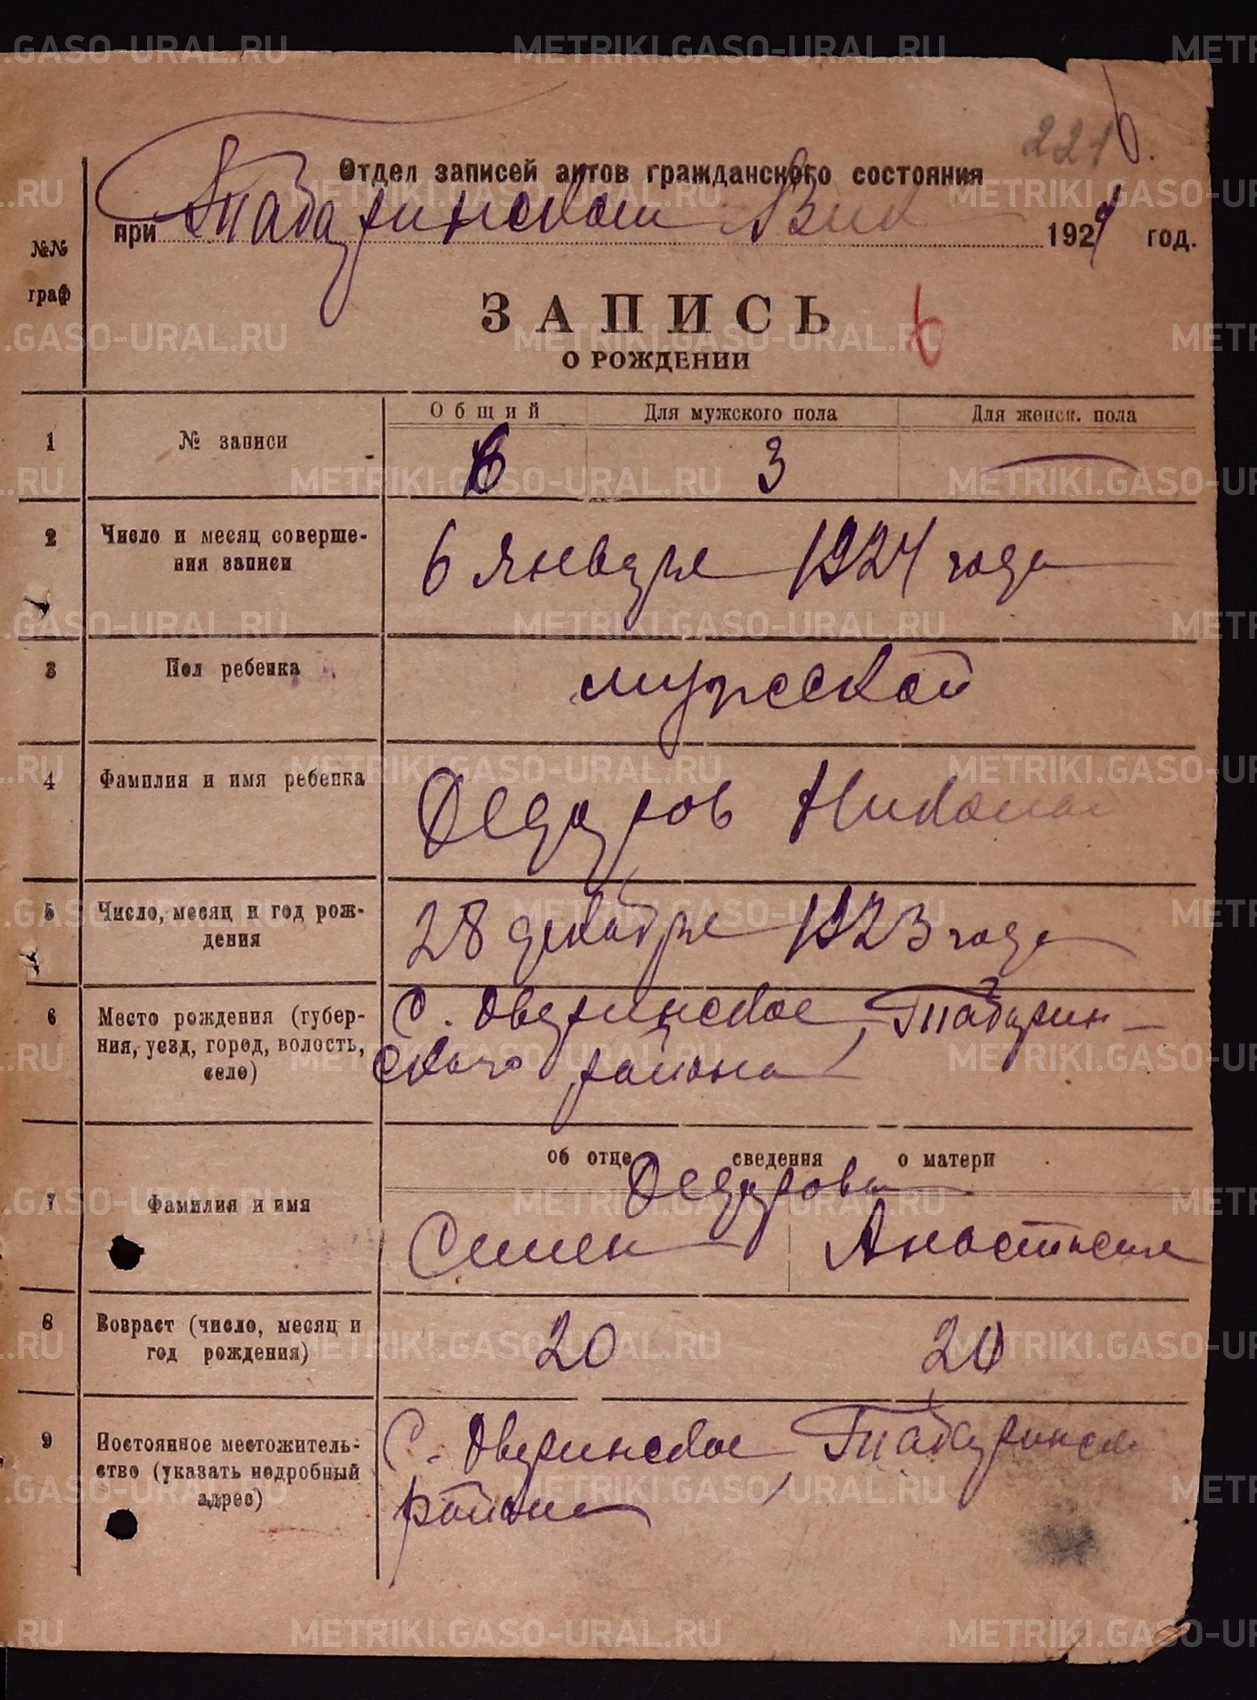 221
6.
Отдел записей актов гражданского состояния
при Табаринском Вик 1924 год.
№№
граф
ЗАПИСЬ 6
О РОЖДЕНИИ
Общий Для мужского пола Для женск. пола
1 № записи 6 3 —
2 Число и месяц соверше-
ния записи
6 январе 1924 года
3 Пол ребенка мужской
4 Фамилия и имя ребенка Федаров Николай
5 Число, месяц и год рож-
дения
28 декабре 1923 года
6 Место рождения (губер-
ния, уезд, город, волость,
село)
С. Оверинское, Табарин-
скаго района
об отце сведения о матери
Федаровы
7 Фамилия и имя Семен Анастасия
8 Возраст (число, месяц и
год рождения)
20 20
9 Постоянное местожитель-
ство (указать подробный
адрес)
С. Оверинское, Табаринск
района
METRIKI.GASO-URAL.RU